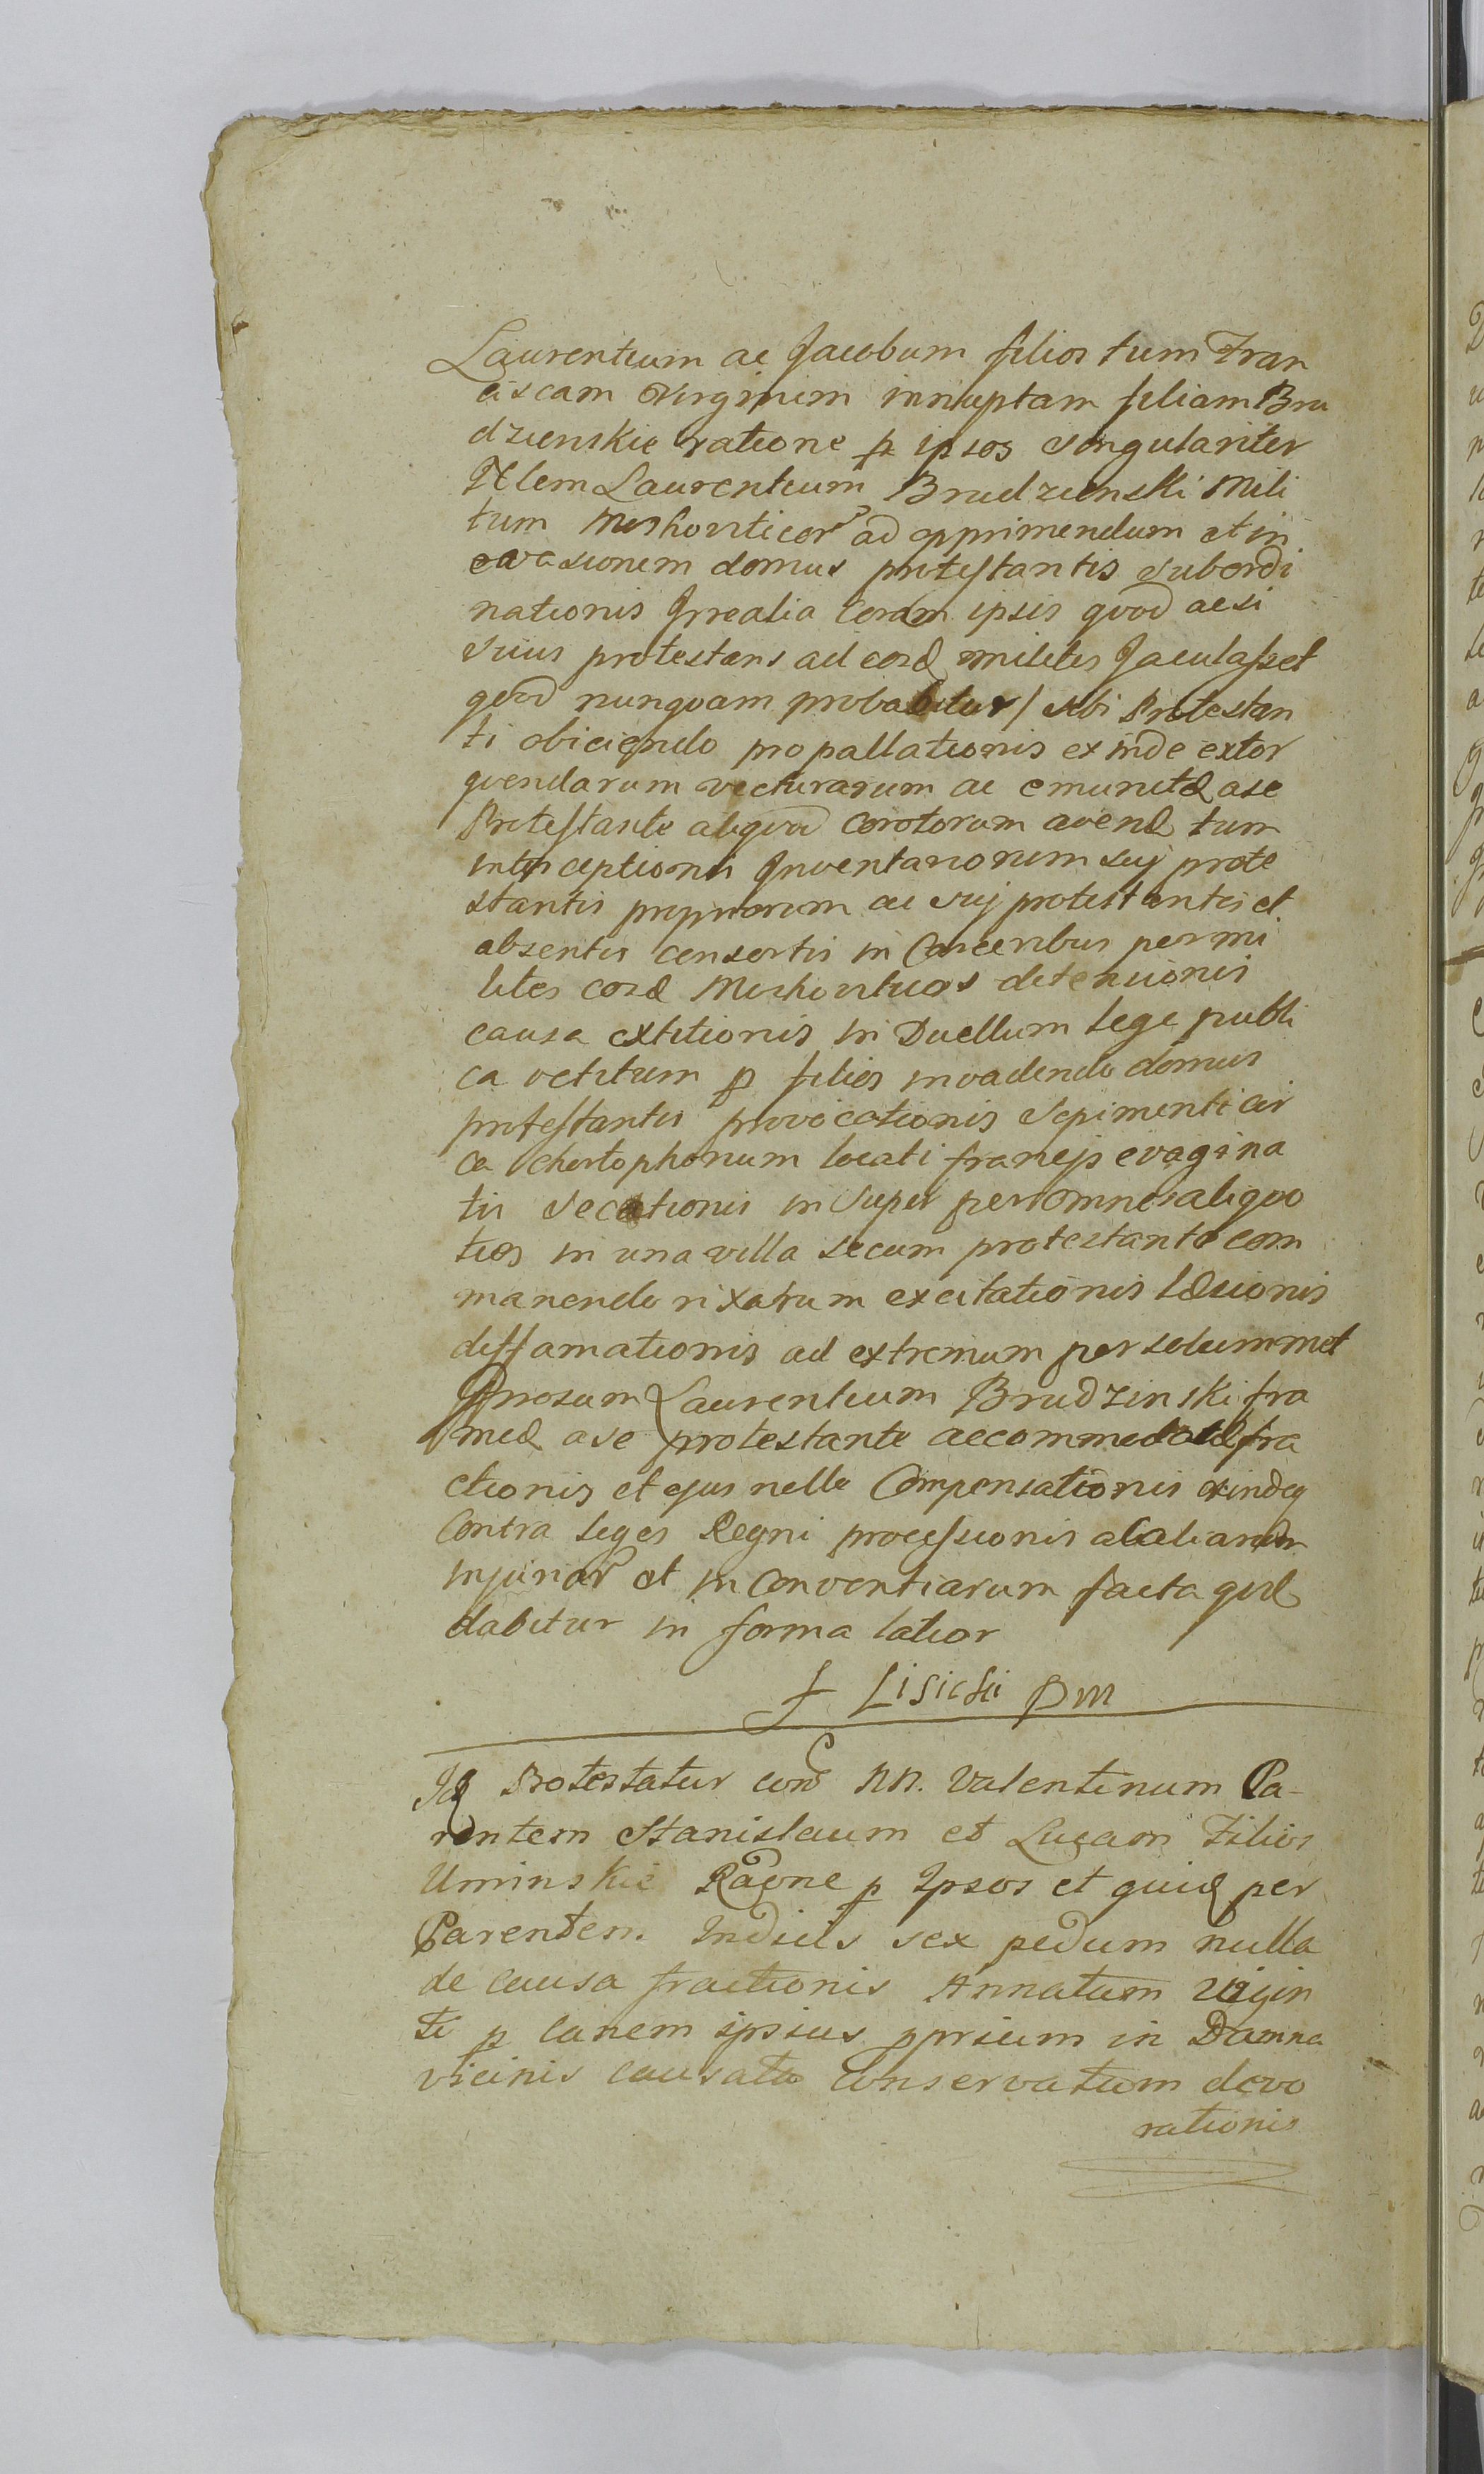 Laurentium ac Jacobum filios tum Fran
ciscam Virginem innuptam filiam Bru
dzienskie ratione p ipsos singulariter
Laurentium Brudzienski Mili
tum Moskoviticor ad opprimendum et in
evasionem domus protestantis subordi
nationis Irrealia coram ipsis quod acsi
suus protestans ad eosd milites Jaculasset
quod nunquam probabitur / sibi Protestan
ti obiiciendo propallationis exinde extor
quendarum vecturarum ac emunitd a se
Protestante aliquod tum
interceptionis Inventariorum sui prote
stantis propriorum ac sui protestantis et
absentis consortis in Carceribus per mi
lites eosd Moskoviticos detensionis
causa extitionis in Duellum lege publi
ca vetitum p filios invadendo domus
protestantis provocationis sepimenti cir
ca locati frameis evagina
tis secationis insuper per omnes aliquo
ties in una villa secum protestante com
manendo rixarum excitationis læsionis
diffamationis ad extremum per solummet
Gnrosum Laurentium Brudzinski fra
med a se protestante accommodatd fra
ctionis et ejus nullæ Compensationis exindeq
Contra leges Regni processionis ac aliarum
injuriar et inconventiarum facta qud
dabitur in forma latior
F Lisicki pm
Id Protestatur con NN. Valentinum Pa-
rentem Stanislaum et Lucam Filios
Uminskie Raone p Ipsos et quid per
Parentem Indiels sex pedum nulla
de causa fractionis Annatum vigin
ti p Canem ipsius pprium in Damna
vicinis causata conservatum devo
rationis